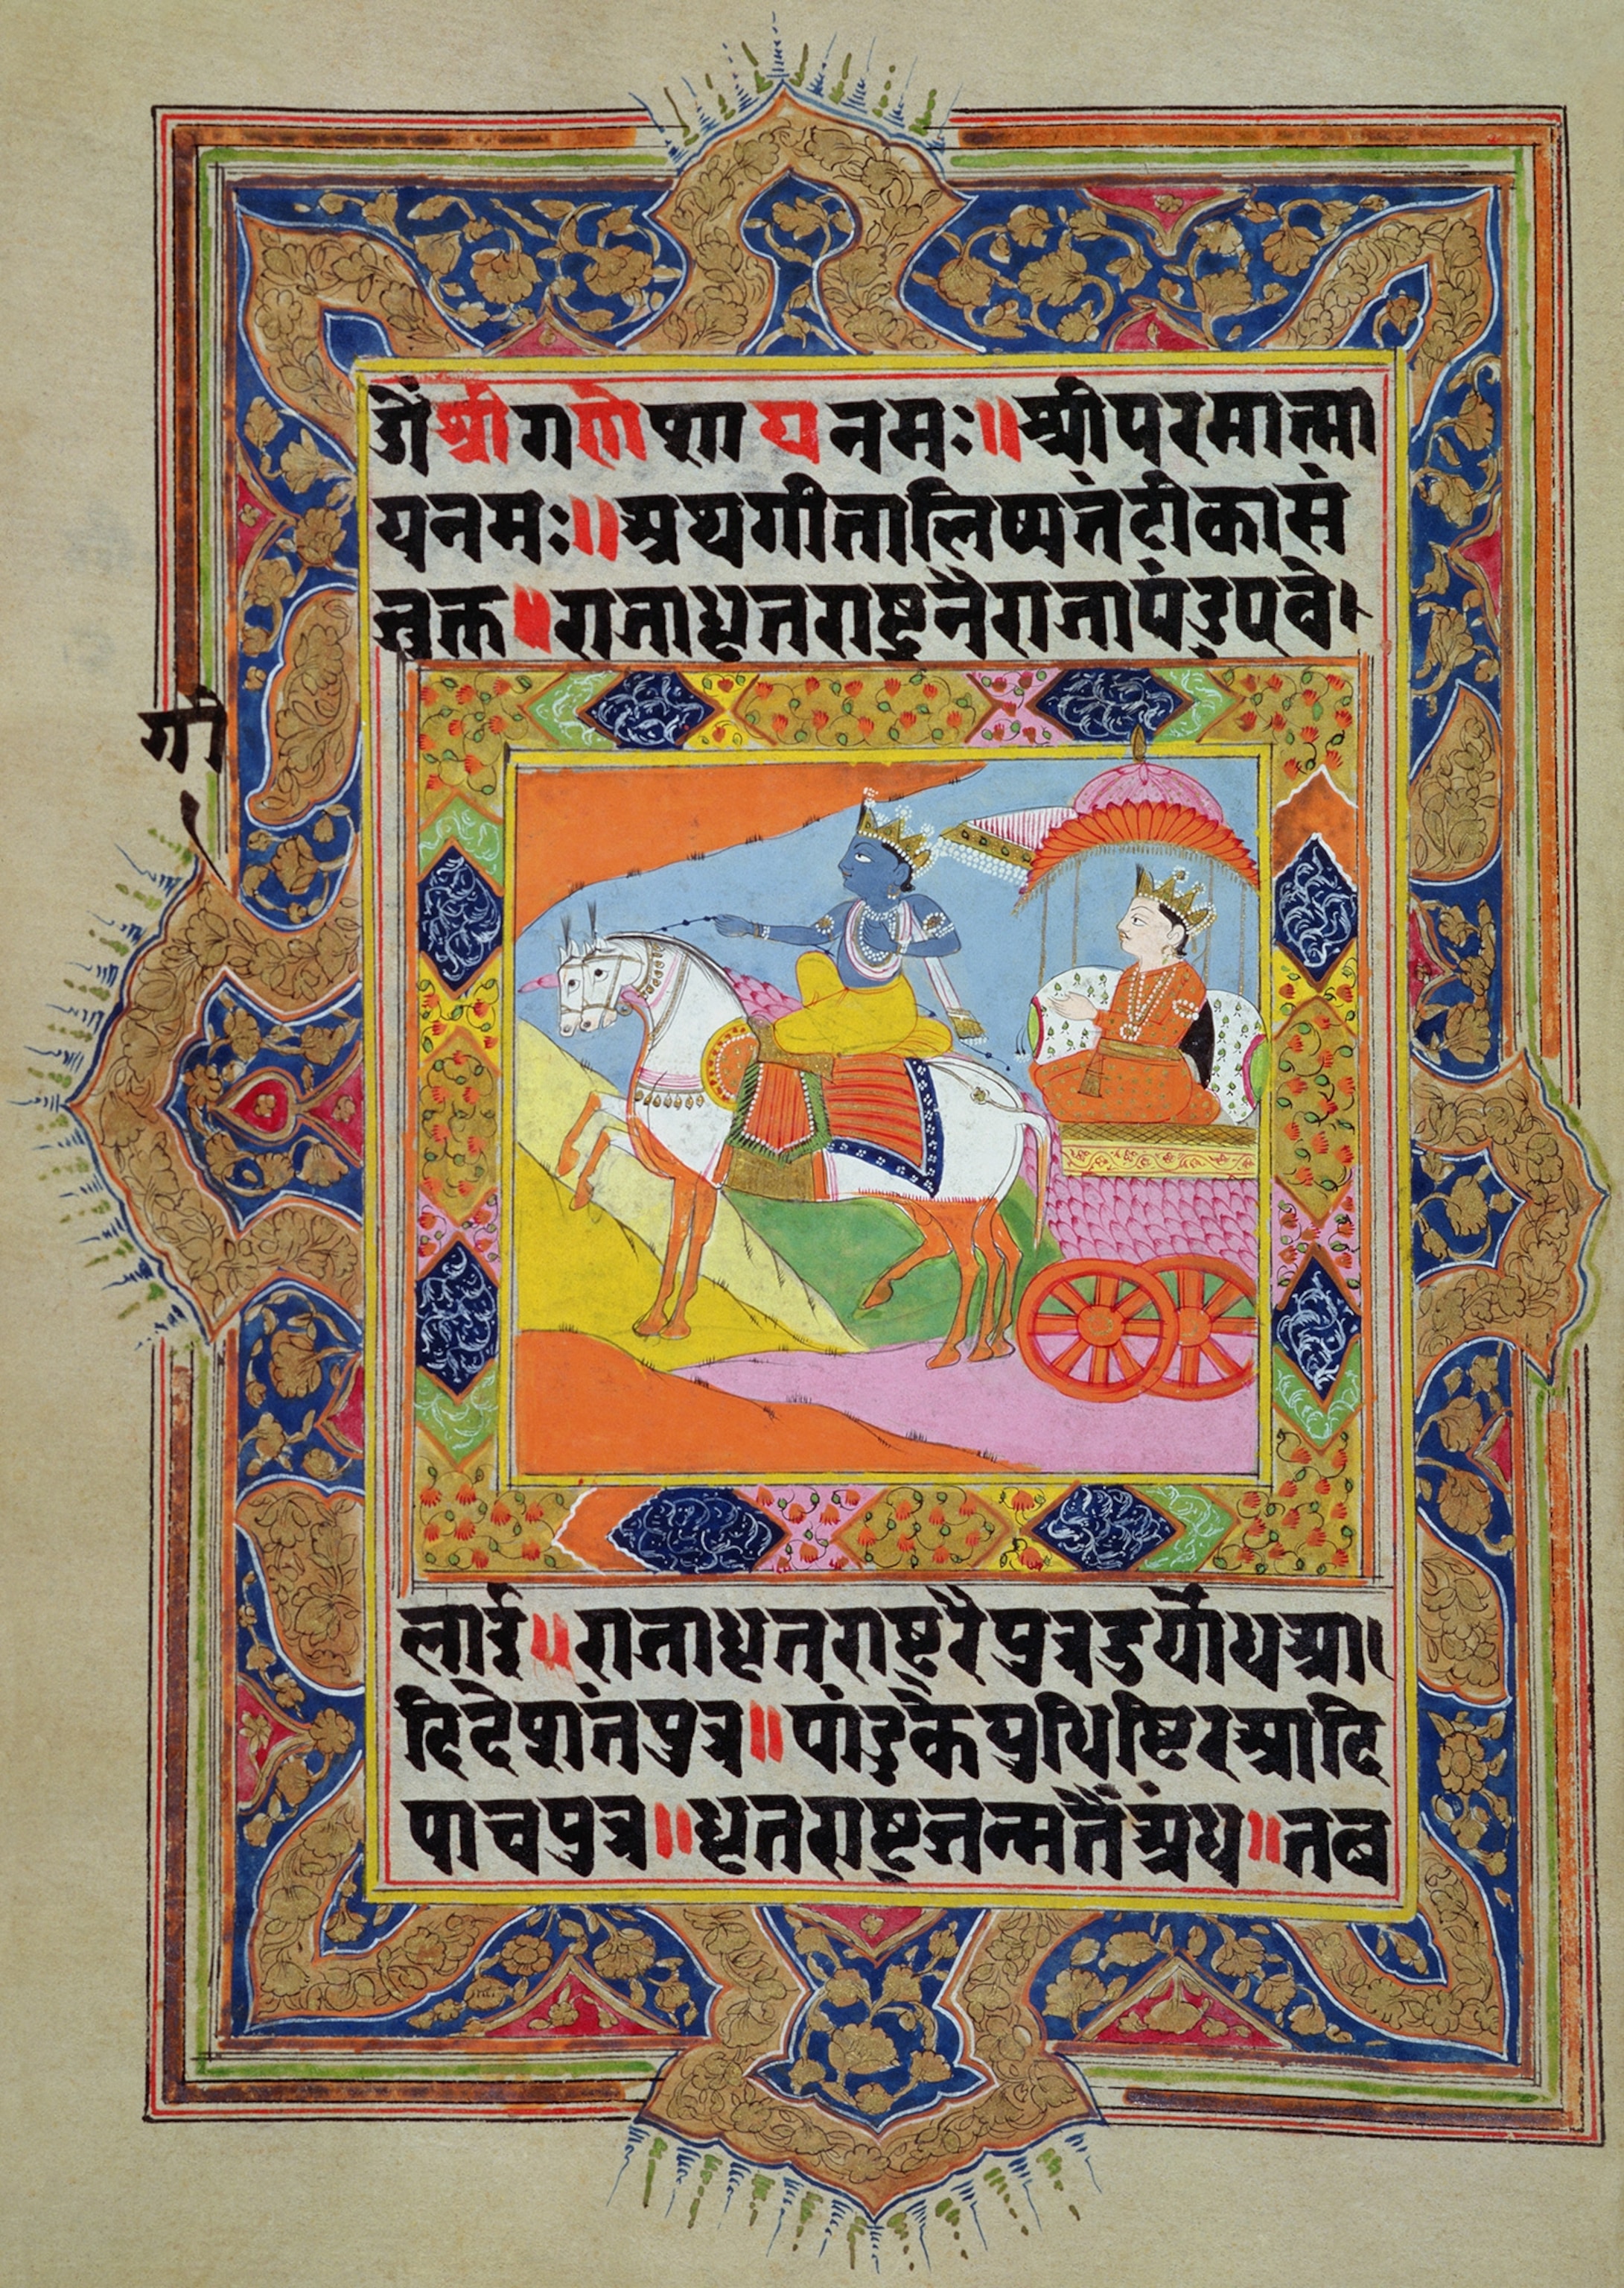 ॐ श्री गणेशाय नमः॥ श्री परमात्मा
य नमः॥ अथ गीता लिष्यते टीका सं
जुक्त॥ राजा धृतराष्ट्र नै राजा पंडु पवे।
गी
लाई॥ राजा धृतराष्ट्र रै पुत्र डुर्योध आ।
दि देशतं पुत्र॥ पांडु के युधिष्टिर आदि
पाच पुत्र॥ धृतराष्ट्र जन्म तै अंध॥ तब